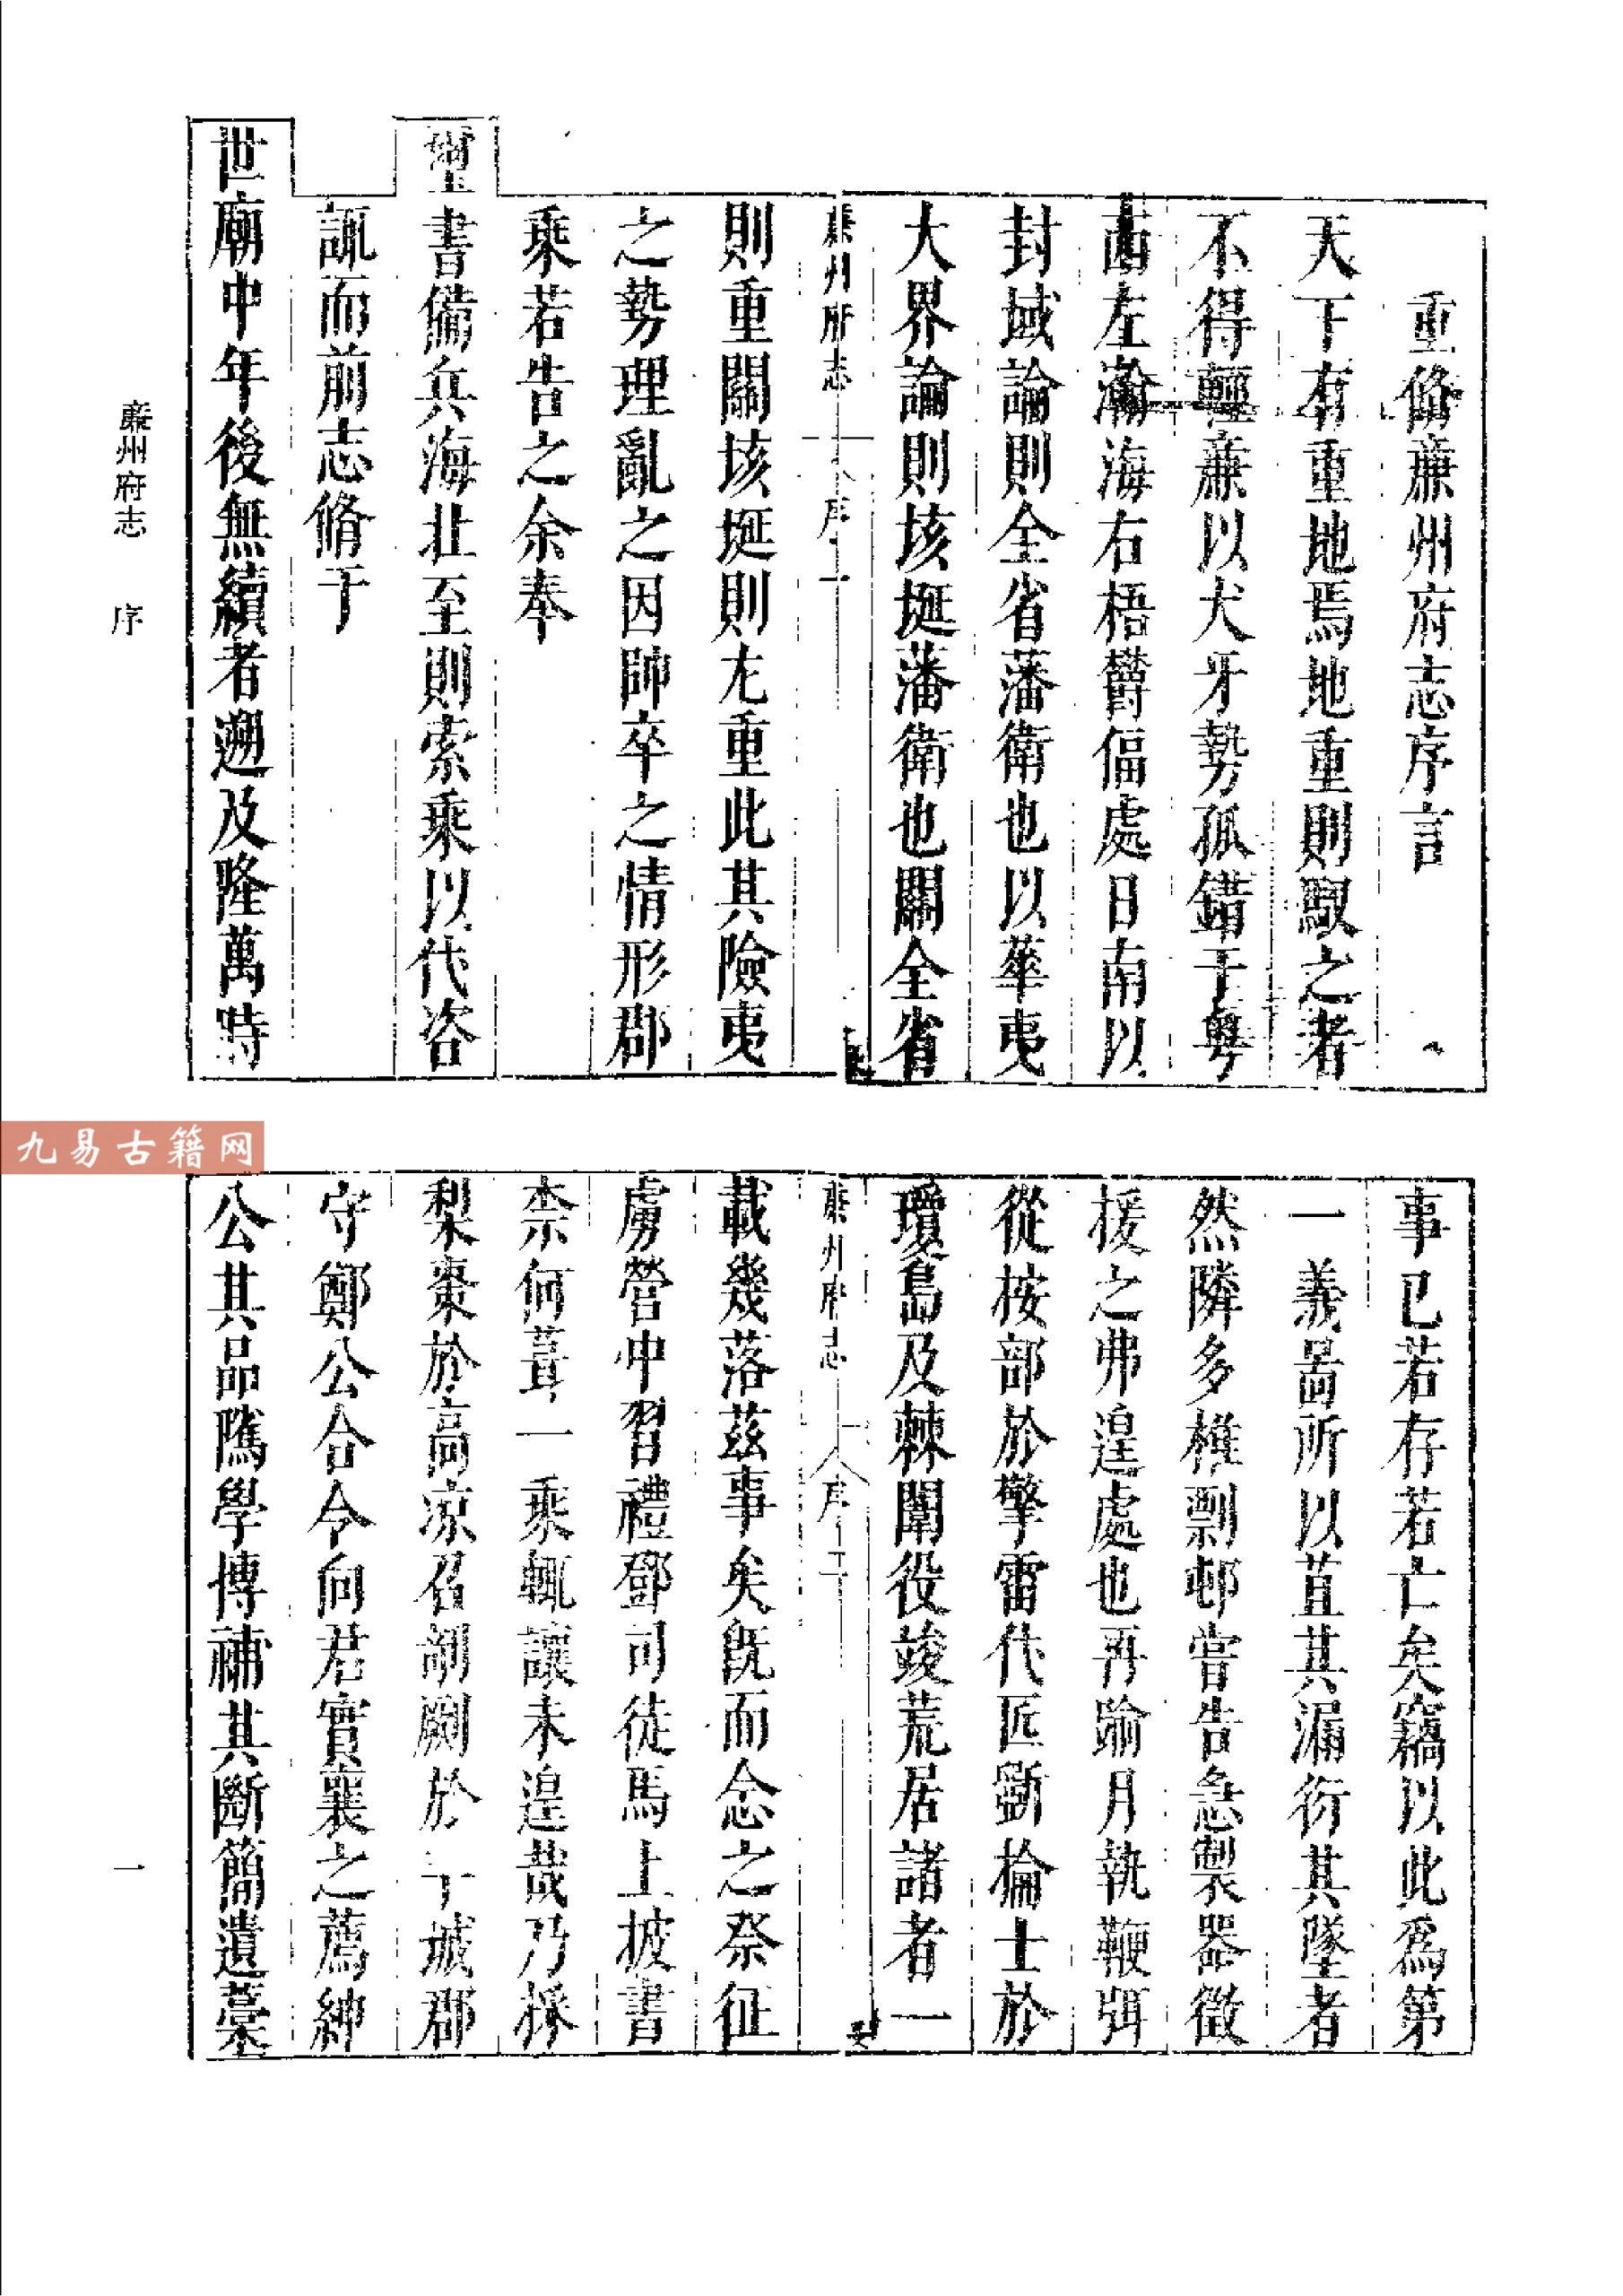 重脩廉州府志序言
天下有重地焉地重則馭之者
不得輕廉以犬牙勢孤錯于粵
西左瀚海右梧欝偪處日南以
封域論則全省藩衛也以華夷
大界論則垓埏藩衛也關全省
廉州府志
序
一
則重關垓埏則尤重此其險夷
之勢理亂之因帥卒之情形郡
乘若告之余奉
璽書備兵海北至則索乘以代咨
諏而前志脩于
世廟中年後無續者遡及隆萬時
廉州府志 序
九易古籍网
事已若存若亡矣竊以此爲第
一義啚所以苴其漏衍其墜者
然隣多椎剽邨嘗告急製器徵
援之弗遑處也再踰月執鞭弭
從按部於擎雷代匠斵掄士於
瓊島及棘闈役竣荒居諸者一
廉州府志
序
二
載幾落茲事矣既而念之祭征
虜營中習禮鄧司徒馬上披書
柰何葺一乘輒讓未遑哉乃授
梨棗於高凉召剞劂於 城郡
守鄭公合令向君實襄之薦紳
公其品隲學博補其斷簡遺藁
一